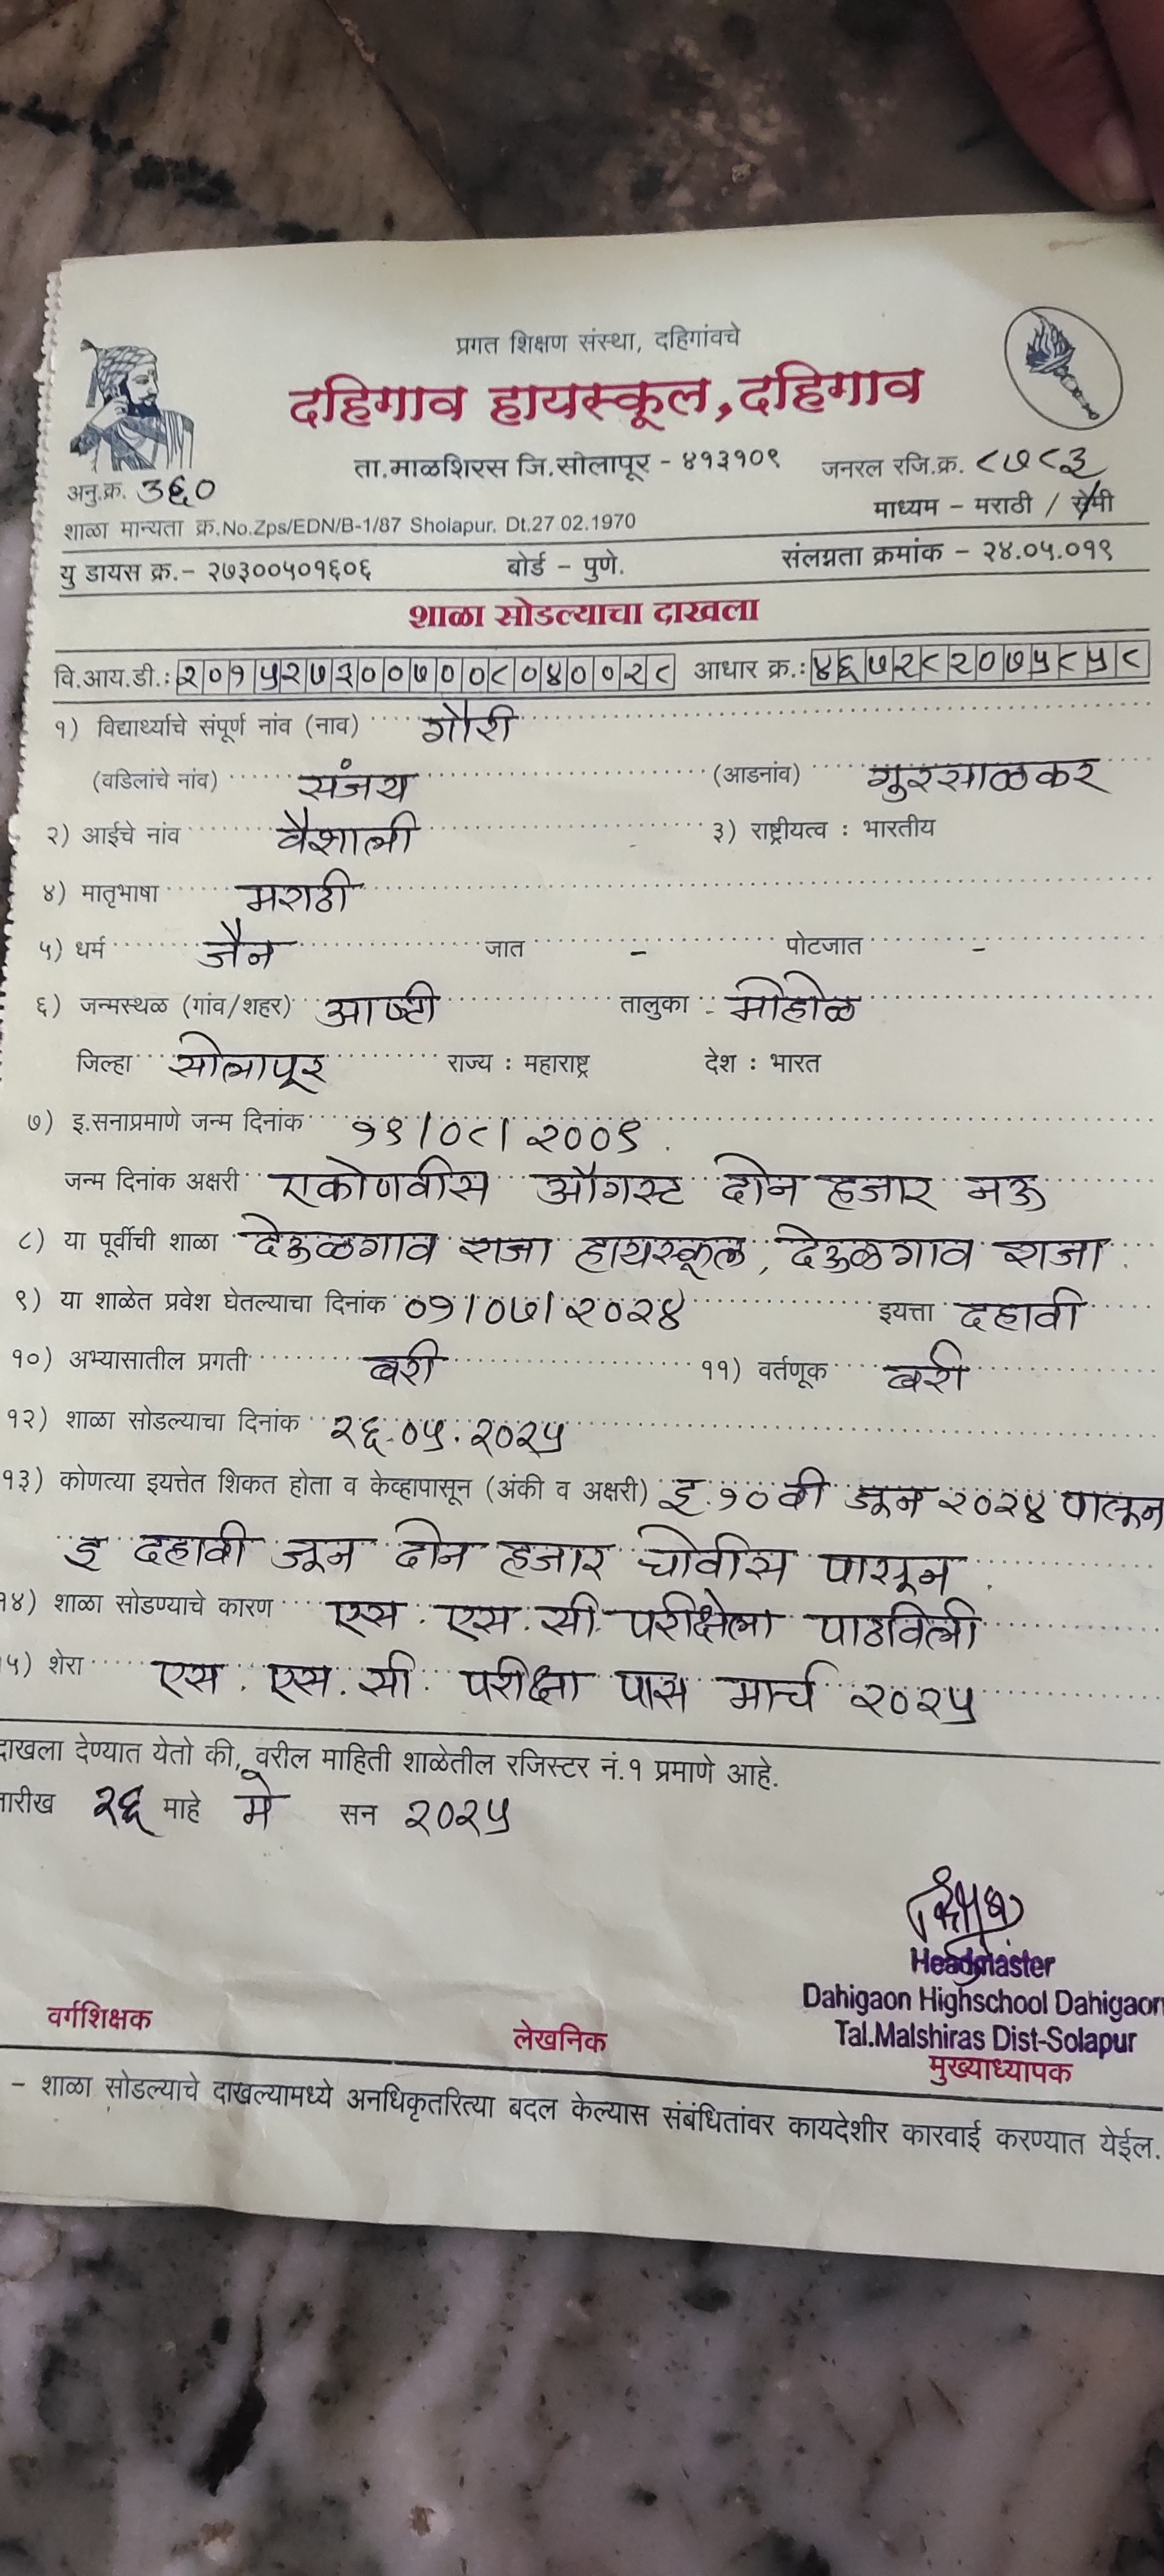 प्रगत शिक्षण संस्था, दहिगांवचे
दहिगाव हायस्कूल, दहिगाव
ता.माळशिरस जि.सोलापूर - ४१३१०९ जनरल रजि.क्र. ८७८३
अनु.क्र. ३६० माध्यम - मराठी / सेमी
शाळा मान्यता क्र.No.Zps/EDN/B-1/87 Sholapur. Dt.27 02.1970
यु डायस क्र.- २७३००५०१६०६ बोर्ड - पुणे. संलग्नता क्रमांक - २४.०५.०१९
शाळा सोडल्याचा दाखला
वि.आय.डी.: २०१५२७३००७००८०४००२८ आधार क्र.: ४६७२८२०७५८५८
१) विद्यार्थ्याचे संपूर्ण नांव (नाव) गौरी
(वडिलांचे नांव) संजय (आडनांव) गुरसाळकर
२) आईचे नांव वैशाली - ३) राष्ट्रीयत्व : भारतीय
४) मातृभाषा मराठी
५) धर्म जैन जात - पोटजात -
६) जन्मस्थळ (गांव/शहर) आष्टी तालुका - मोहोळ
जिल्हा सोलापूर राज्य : महाराष्ट्र देश : भारत
७) इ.सनाप्रमाणे जन्म दिनांक १९/०८/२००९.
जन्म दिनांक अक्षरी एकोणवीस ऑगस्ट दोन हजार नऊ
८) या पूर्वीची शाळा देऊळगाव राजा हायस्कूल, देऊळगाव राजा.
९) या शाळेत प्रवेश घेतल्याचा दिनांक ०१/०७/२०२४ इयत्ता दहावी
१०) अभ्यासातील प्रगती बरी ११) वर्तणूक बरी
१२) शाळा सोडल्याचा दिनांक २६.०५.२०२५
१३) कोणत्या इयत्तेत शिकत होता व केव्हापासून (अंकी व अक्षरी) इ.१०वी जून २०२४ पासून
इ दहावी जून दोन हजार चोवीस पासून.
१४) शाळा सोडण्याचे कारण एस. एस. सी. परीक्षेला पाठविली
५) शेरा एस. एस. सी. परीक्षा पास मार्च २०२५
दाखला देण्यात येतो की, वरील माहिती शाळेतील रजिस्टर नं.१ प्रमाणे आहे.
तारीख २६ माहे मे सन २०२५
Headmaster
Dahigaon Highschool Dahigaon
Tal.Malshiras Dist-Solapur
वर्गशिक्षक लेखनिक मुख्याध्यापक
- शाळा सोडल्याचे दाखल्यामध्ये अनधिकृतरित्या बदल केल्यास संबंधितांवर कायदेशीर कारवाई करण्यात येईल.